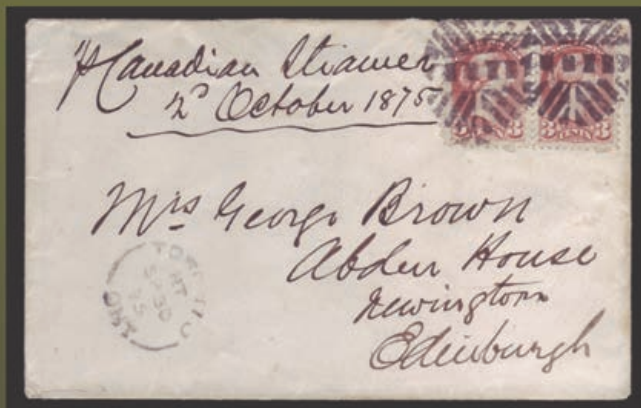 P Canadian Steamer
2d October 1875
3 CENTS 3
Mrs George Brown
Abden House
Newington
Edinburgh
TORONTO
SP 30
75
ONT